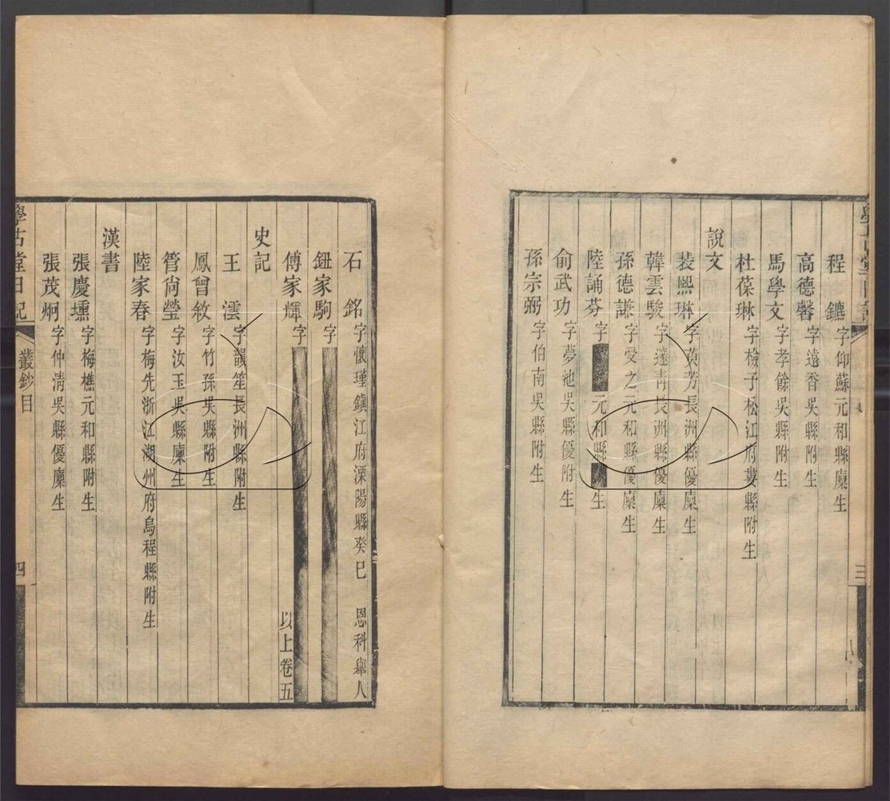 程鑣字仰蘇元和縣廩生
高德馨字遠香吳縣附生
馬學文字孝餘吳縣附生
杜葆琳字檢子松江府婁縣附生
說文
裴熙琳字黃芳長洲縣優廩生
韓雲駿字蓬青長洲縣優廩生
孫德謙字受之元和縣優廩生
陸誦芬字元和縣生
俞武功字夢池吳縣優附生
孫宗弼字伯南吳縣附生
三
石銘字懷瑾鎮江府溧陽縣癸巳 恩科舉人
鈕家駒字
傅家輝字 以上卷五
史記
王澐字韻笙長洲縣附生
鳳曾敘字竹孫吳縣附生
管尙瑩字汝玉吳縣廩生
陸家春字梅先浙江湖州府烏程縣附生
漢書
張慶壎字梅樵元和縣附生
張茂炯字仲清吳縣優廩生
學古堂日記 叢鈔目 四